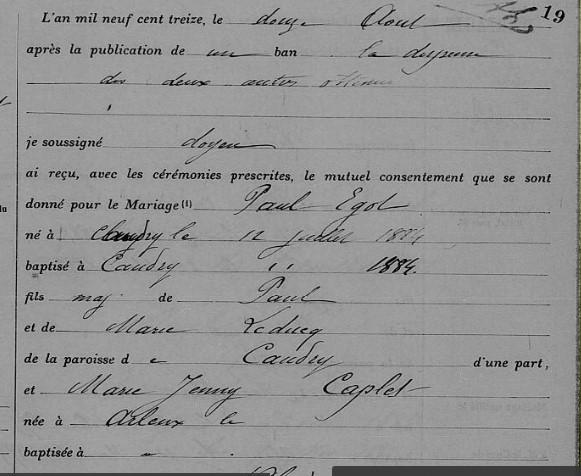 19
L'an mil neuf cent treize, le douze Aout
après la publication de un ban la dispense
des deux autres obtenue
je soussigné doyen
ai reçu, avec les cérémonies prescrites, le mutuel consentement que se sont
donné pour le Mariage (1) Paul Egot
né à Caudry le 12 juillet 1884
baptisé à Caudry " 1884.
fils maj. de Paul
et de Marie Leducq
de la paroisse d e Caudry d'une part,
et Marie Jenny Caplet
née à Arleux le
baptisée à